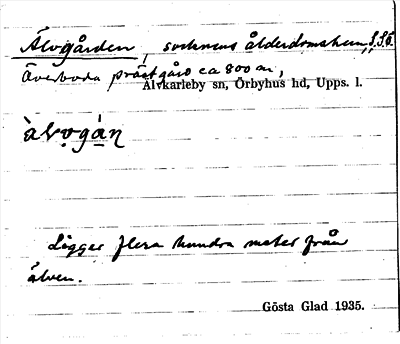 Älvgården, socknens ålderdomshem, S.S.Ö.
Överboda prästgård ca 800 m,
Älvkarleby sn, Örbyhus hd, Uppl.
àlvgán
Ligger flera hundra meter från
älven.
Gösta Glad 1935.